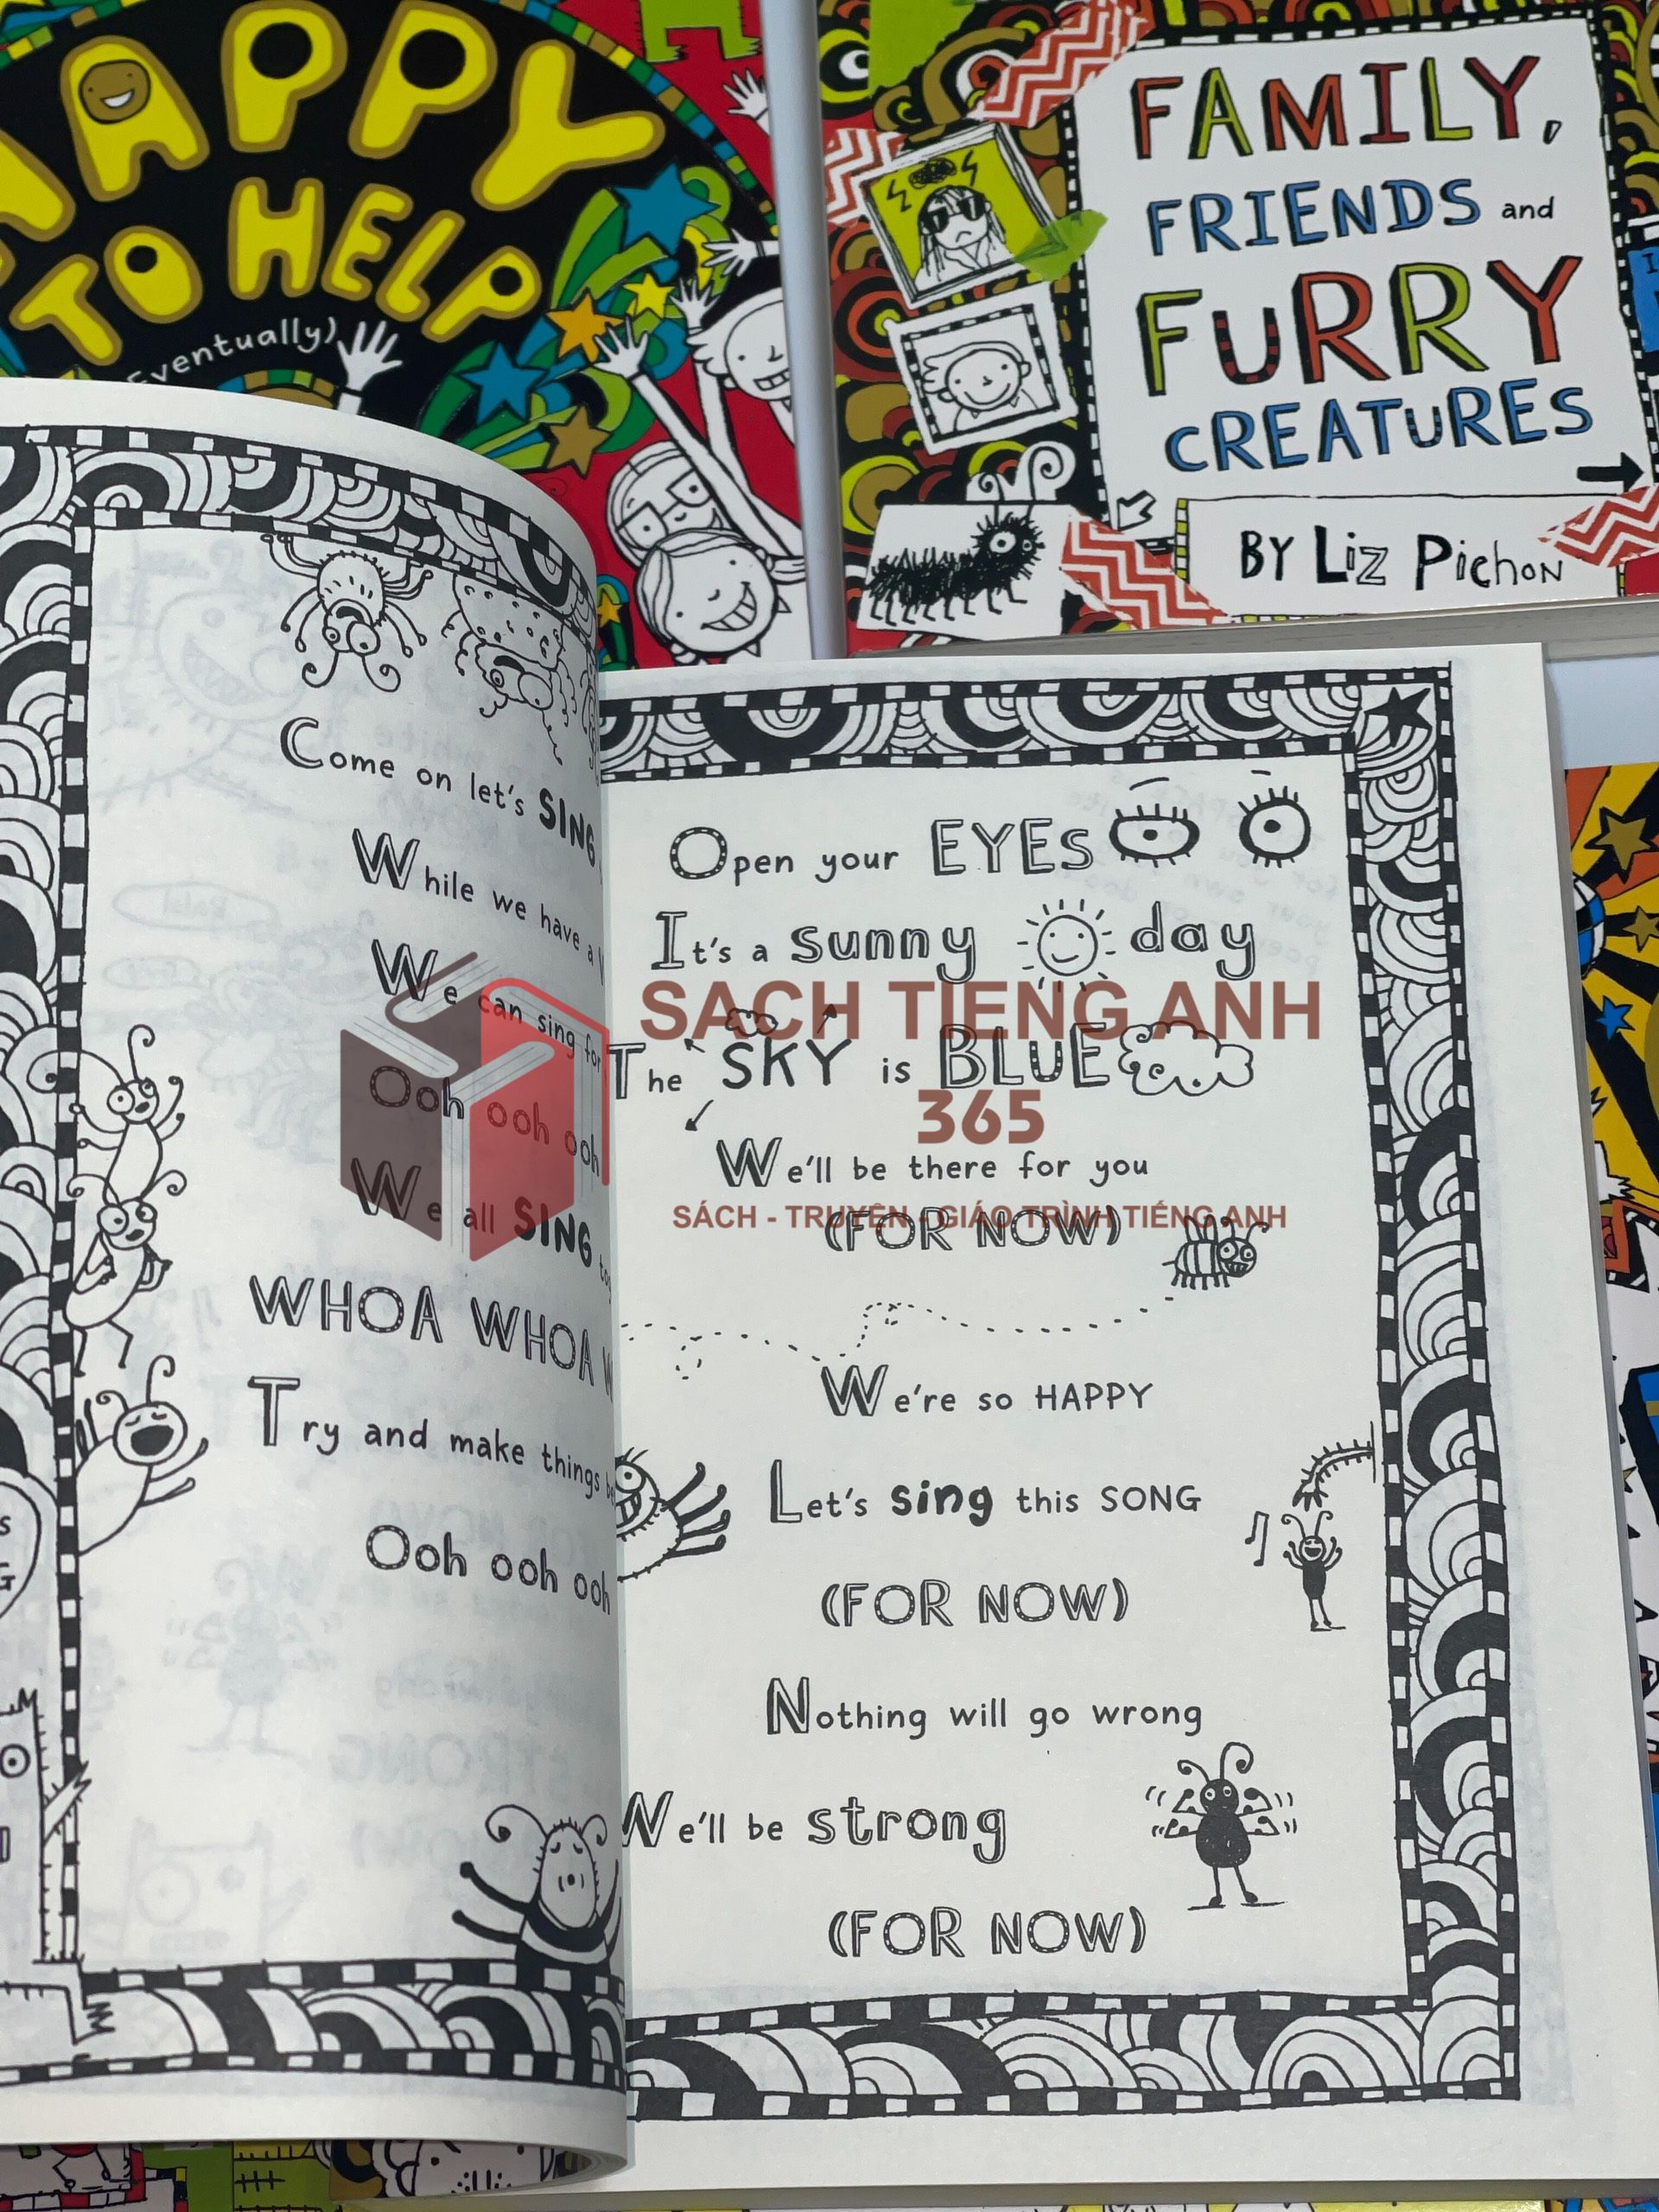 HAPPY
TO HELP
(Eventually)
FAMILY,
FRIENDS and
FURRY
CREATURES
BY Liz PichoN
Come on let's SING
While we have a
We can sing for
Ooh ooh ooh
We all SING
WHOA WHOA
Try and make things
Ooh ooh ooh
Open your EYES
It's a sunny day
The SKY is BLUE
We'll be there for you
(FOR NOW)
We're so HAPPY
Let's sing this SONG
(FOR NOW)
Nothing will go wrong
We'll be strong
(FOR NOW)
SACH TIENG ANH
365
SÁCH - TRUYỆN - GIÁO TRÌNH TIẾNG ANH